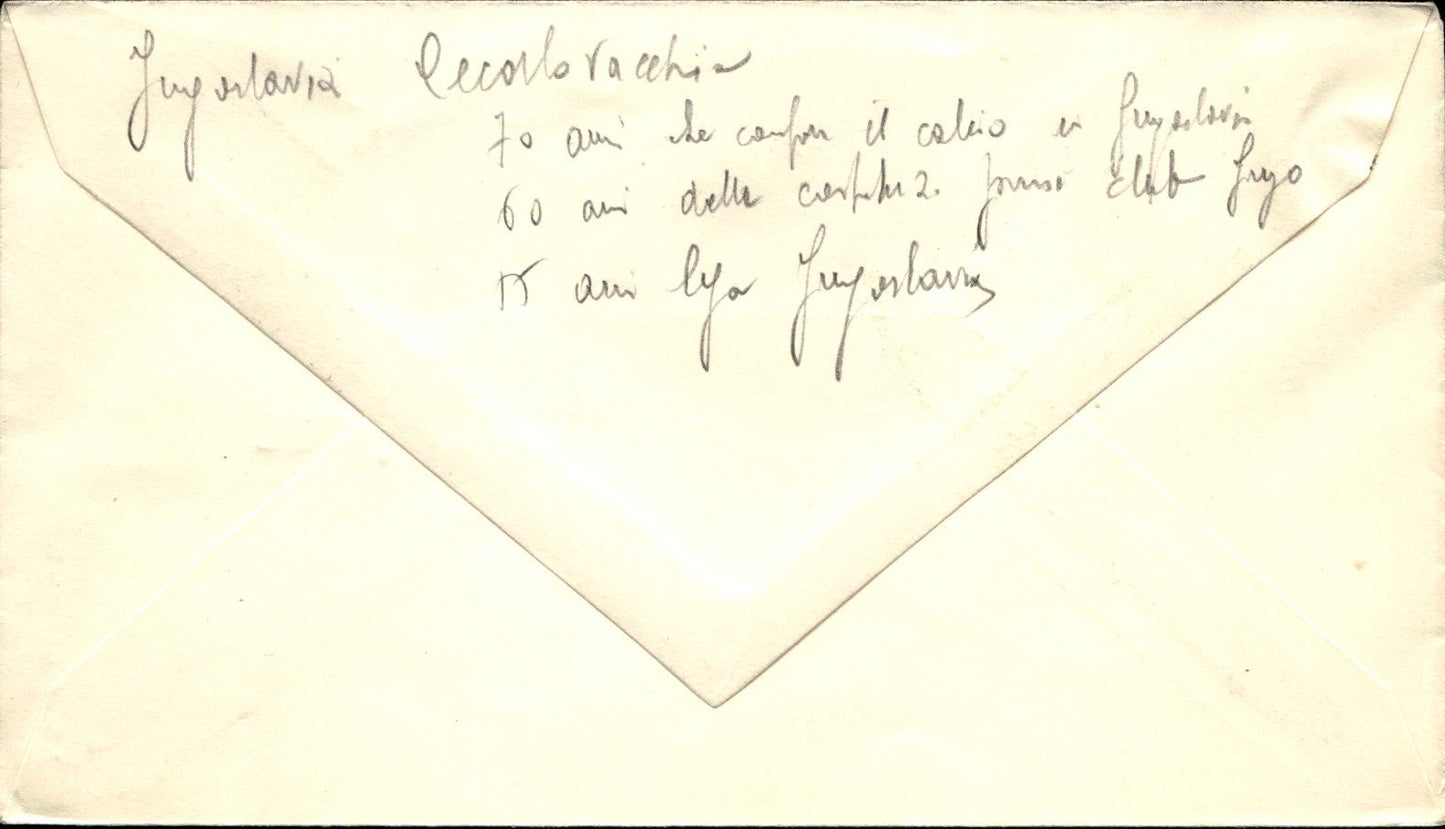 Jugoslavia Cecoslovacchia
70 anni che il calcio in Jugoslavia
60 anni della primo club Jugo
anni Lega Jugoslavia